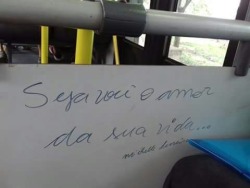 Seja você o amor
da sua vida...